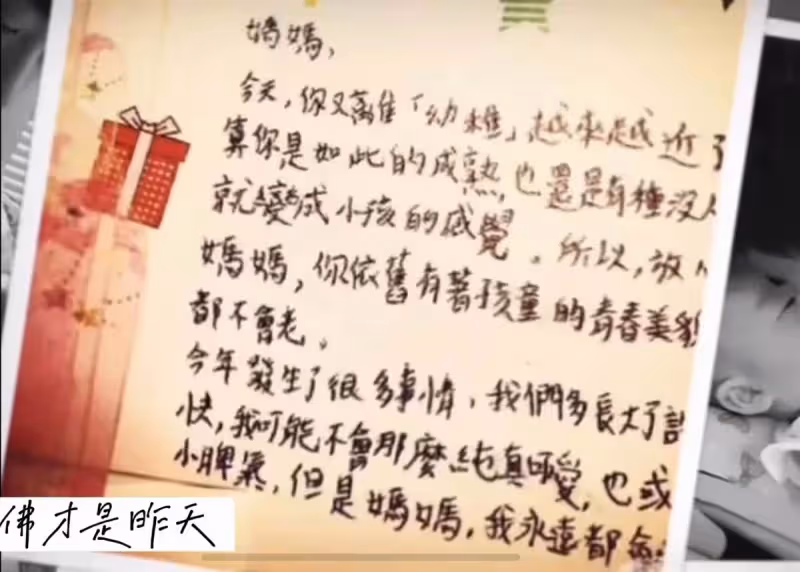 媽媽,
今天,你又離「幼稚」越來越近了
算你是如此的成熟,也還是有種沒
就變成小孩的感覺。所以,放
媽媽,你依舊有著孩童的青春美貌
都不會老。
今年發生了很多事情,我們多長大了許
快,我可能不會那麼純真可愛,也或
小脾氣,但是媽媽,我永遠都會
佛才是昨天